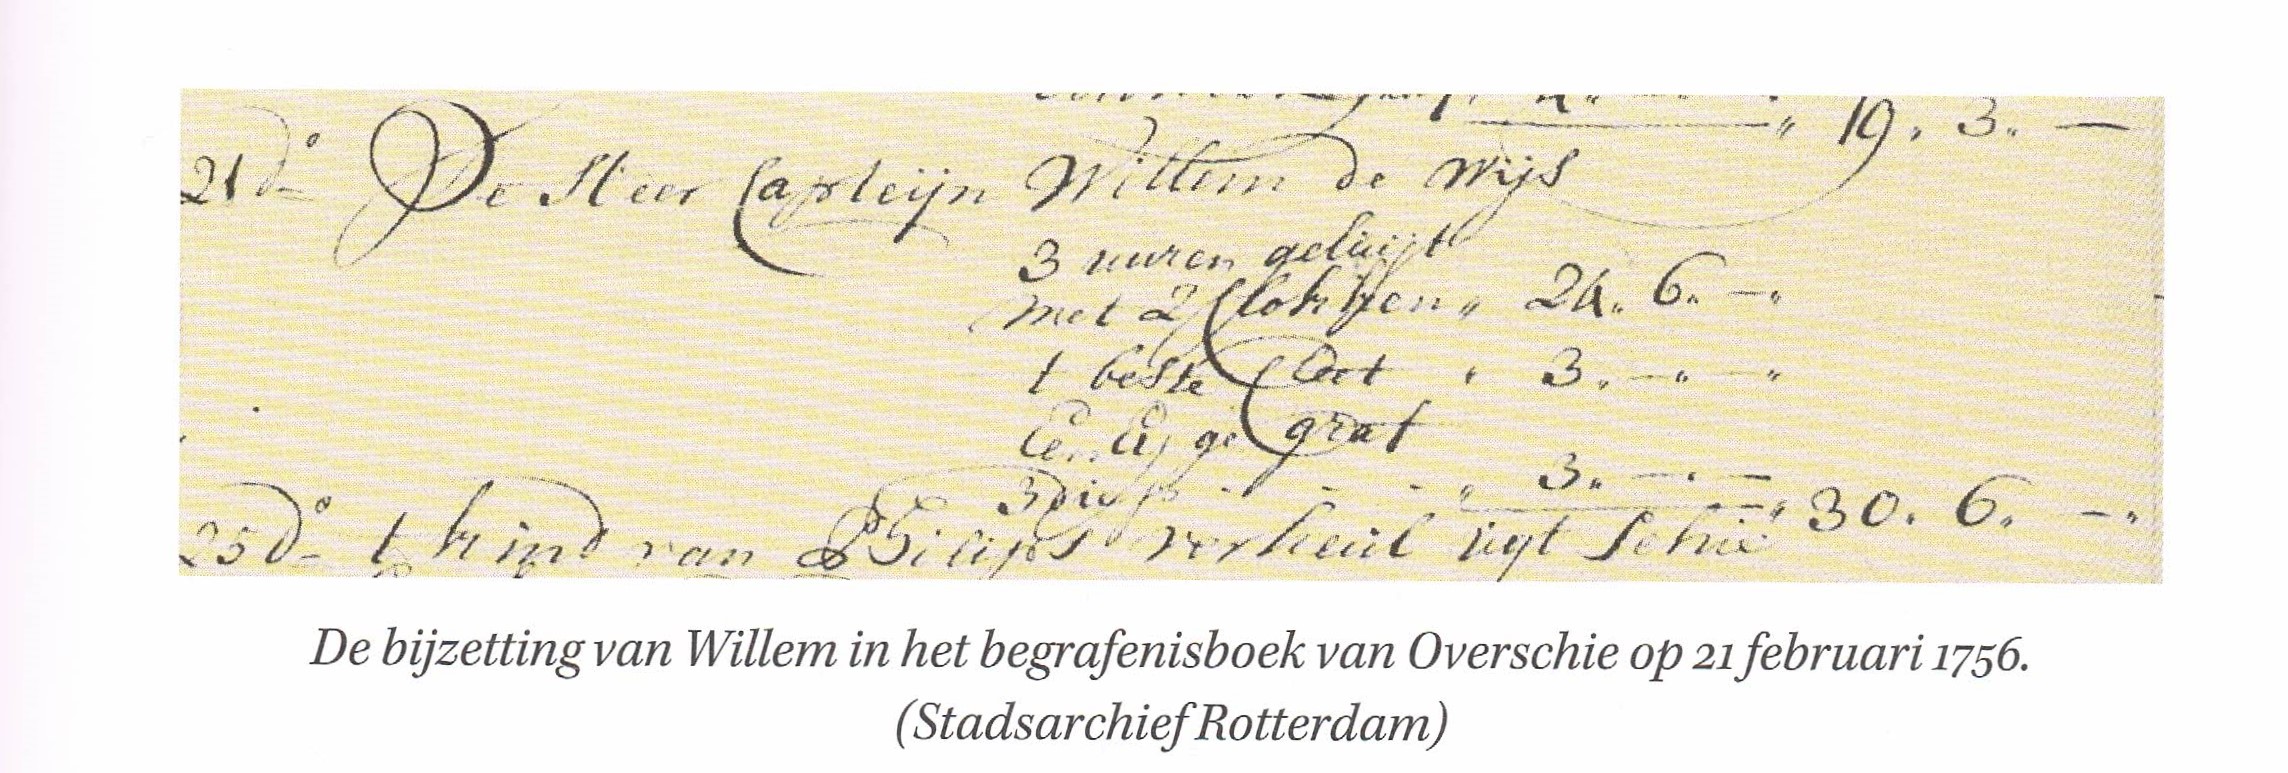 19. 3. —
21 do De Heer Capteijn Willem de Wijs
3 uuren geluijt
met 2 Clokken „ 24. 6. —
1 beste Cleet „ 3. — „ —
Een Eijge graf
3 diep - - - „ 3. — . —
„ 30. 6. —
25 do 1 kind van Philips verheul uyt Schie
De bijzetting van Willem in het begrafenisboek van Overschie op 21 februari 1756.
(Stadsarchief Rotterdam)